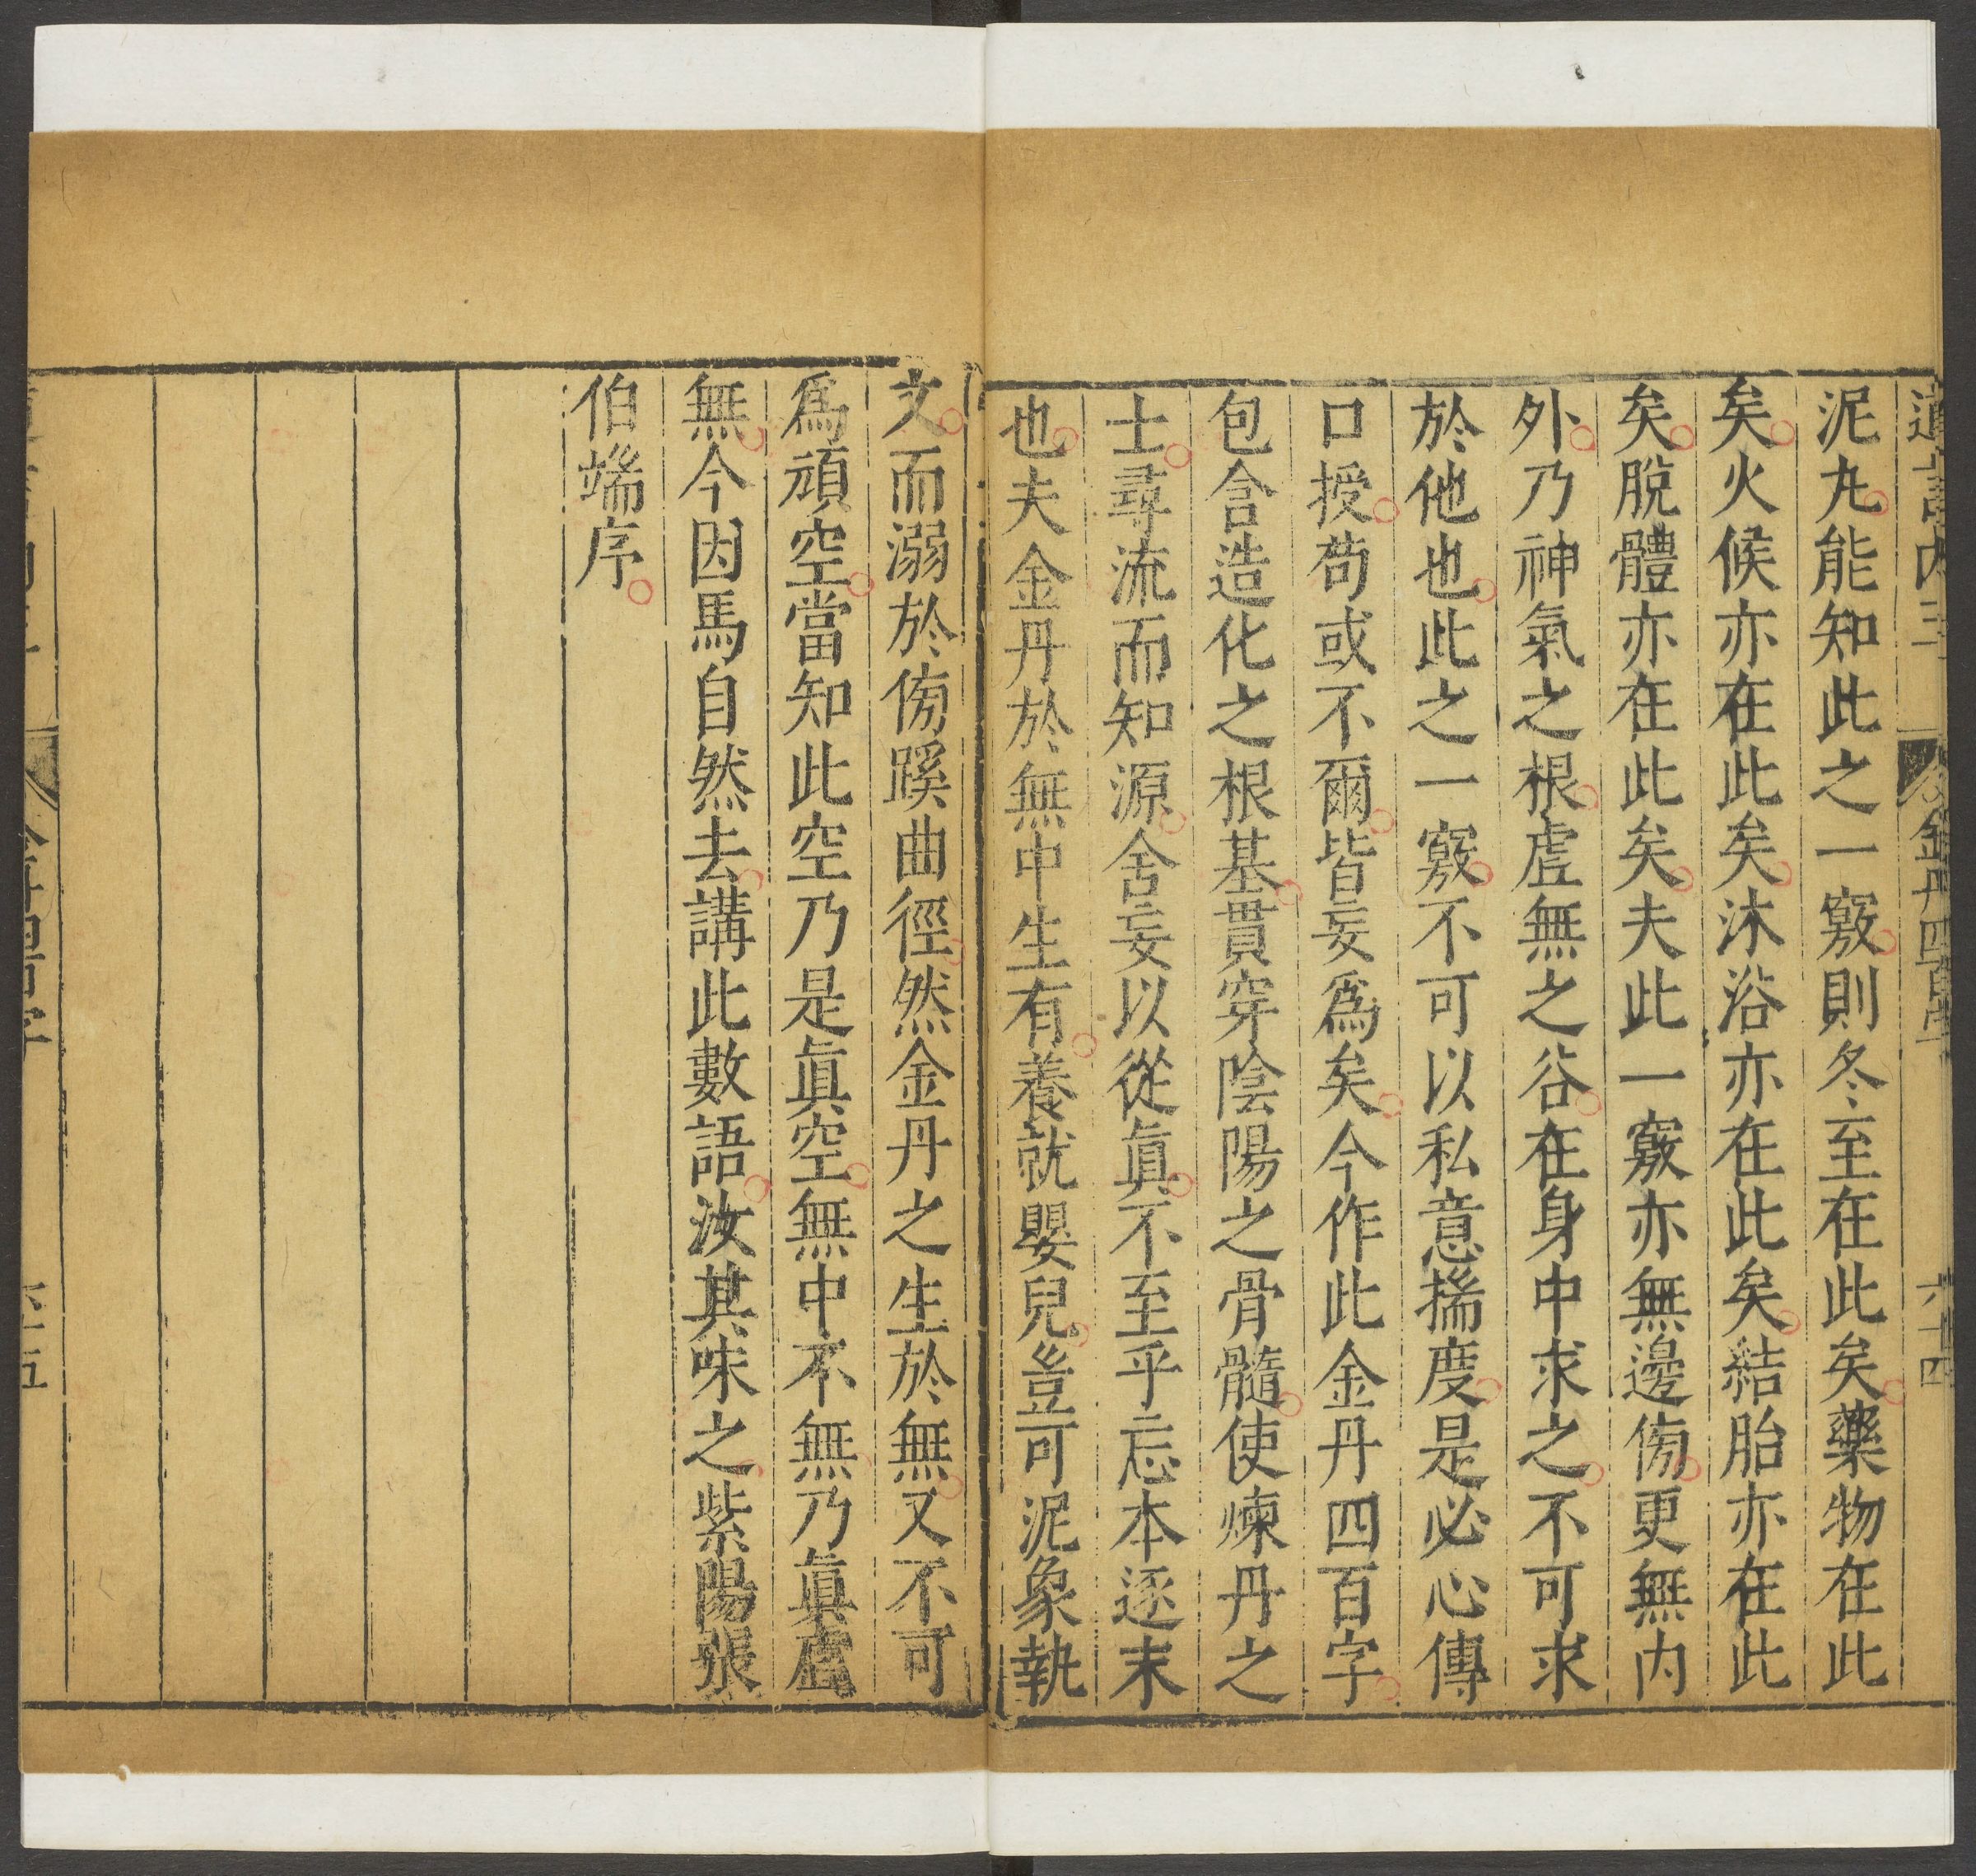 道言內三 金丹四百字 六十四
泥丸能知此之一竅則冬至在此矣藥物在此
矣火候亦在此矣沐浴亦在此矣結胎亦在此
矣脫體亦在此矣夫此一竅亦無邊傍更無內
外乃神氣之根虛無之谷在身中求之不可求
於他也此之一竅不可以私意揣度是必心傳
口授苟或不爾皆妄爲矣今作此金丹四百字
包含造化之根基貫穿陰陽之骨髓使煉丹之
士尋流而知源舍妄以從眞不至乎忘本逐末
也夫金丹於無中生有養就嬰兒豈可泥象執
文而溺於傍蹊曲徑然金丹之生於無又不可
爲頑空當知此空乃是眞空無中不無乃眞虛
無今因馬自然去講此數語汝其味之紫陽張
伯端序